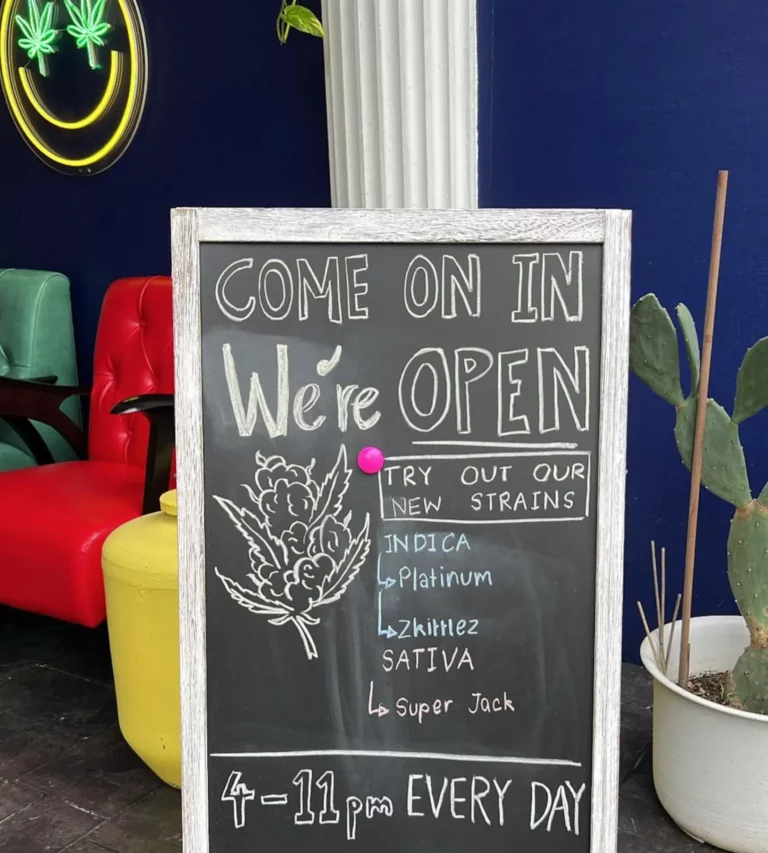 COME ON IN
We're OPEN
TRY OUT OUR
NEW STRAINS
INDICA
Platinum
Zkittlez
SATIVA
Super Jack
4-11pm EVERY DAY